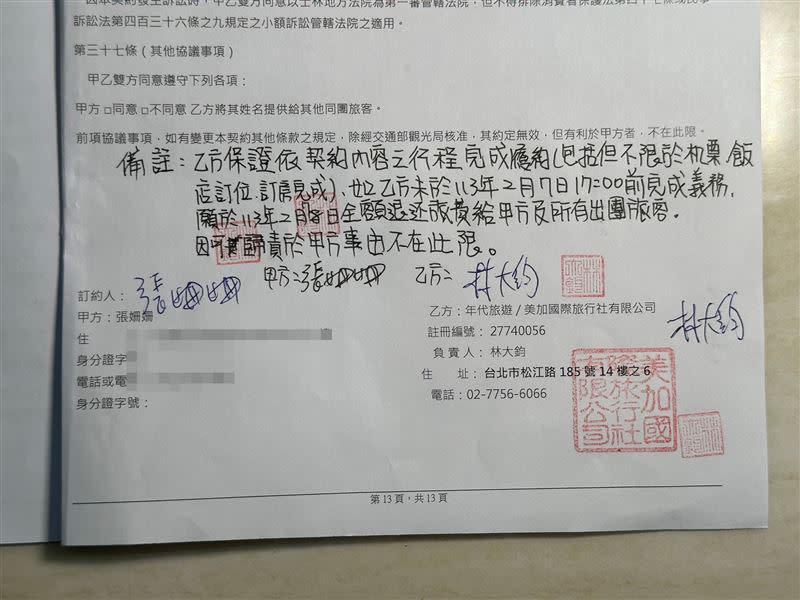 因本契約發生訴訟時，甲乙雙方同意以士林地方法院為第一審管轄法院，但不得排除消費者保護法第四十七條或民事
訴訟法第四百三十六條之九規定之小額訴訟管轄法院之適用。
第三十七條（其他協議事項）
甲乙雙方同意遵守下列各項：
甲方 □同意 □不同意 乙方將其姓名提供給其他同團旅客。
前項協議事項，如有變更本契約其他條款之規定，除經交通部觀光局核准，其約定無效，但有利於甲方者，不在此限。
備註：乙方保證依契約內容之行程完成履約(包括但不限於机票、飯
店訂位、訂房完成)，如乙方未於113年2月7日17:00前完成義務，
願於113年2月8日全額退还旅費給甲方及所有出團旅客。
因可歸責於甲方事由不在此限。
甲方：張姍姍 乙方：林大鈞
訂約人：張姍姍
甲方：張姍姍
住
身分證字
電話或電
身分證字號：
乙方：年代旅遊 / 美加國際旅行社有限公司
林大鈞
註冊編號：27740056
負責人：林大鈞
住 址：台北市松江路 185 號 14 樓之 6
電話：02-7756-6066
美加國際旅行社有限公司
第 13 頁，共 13 頁